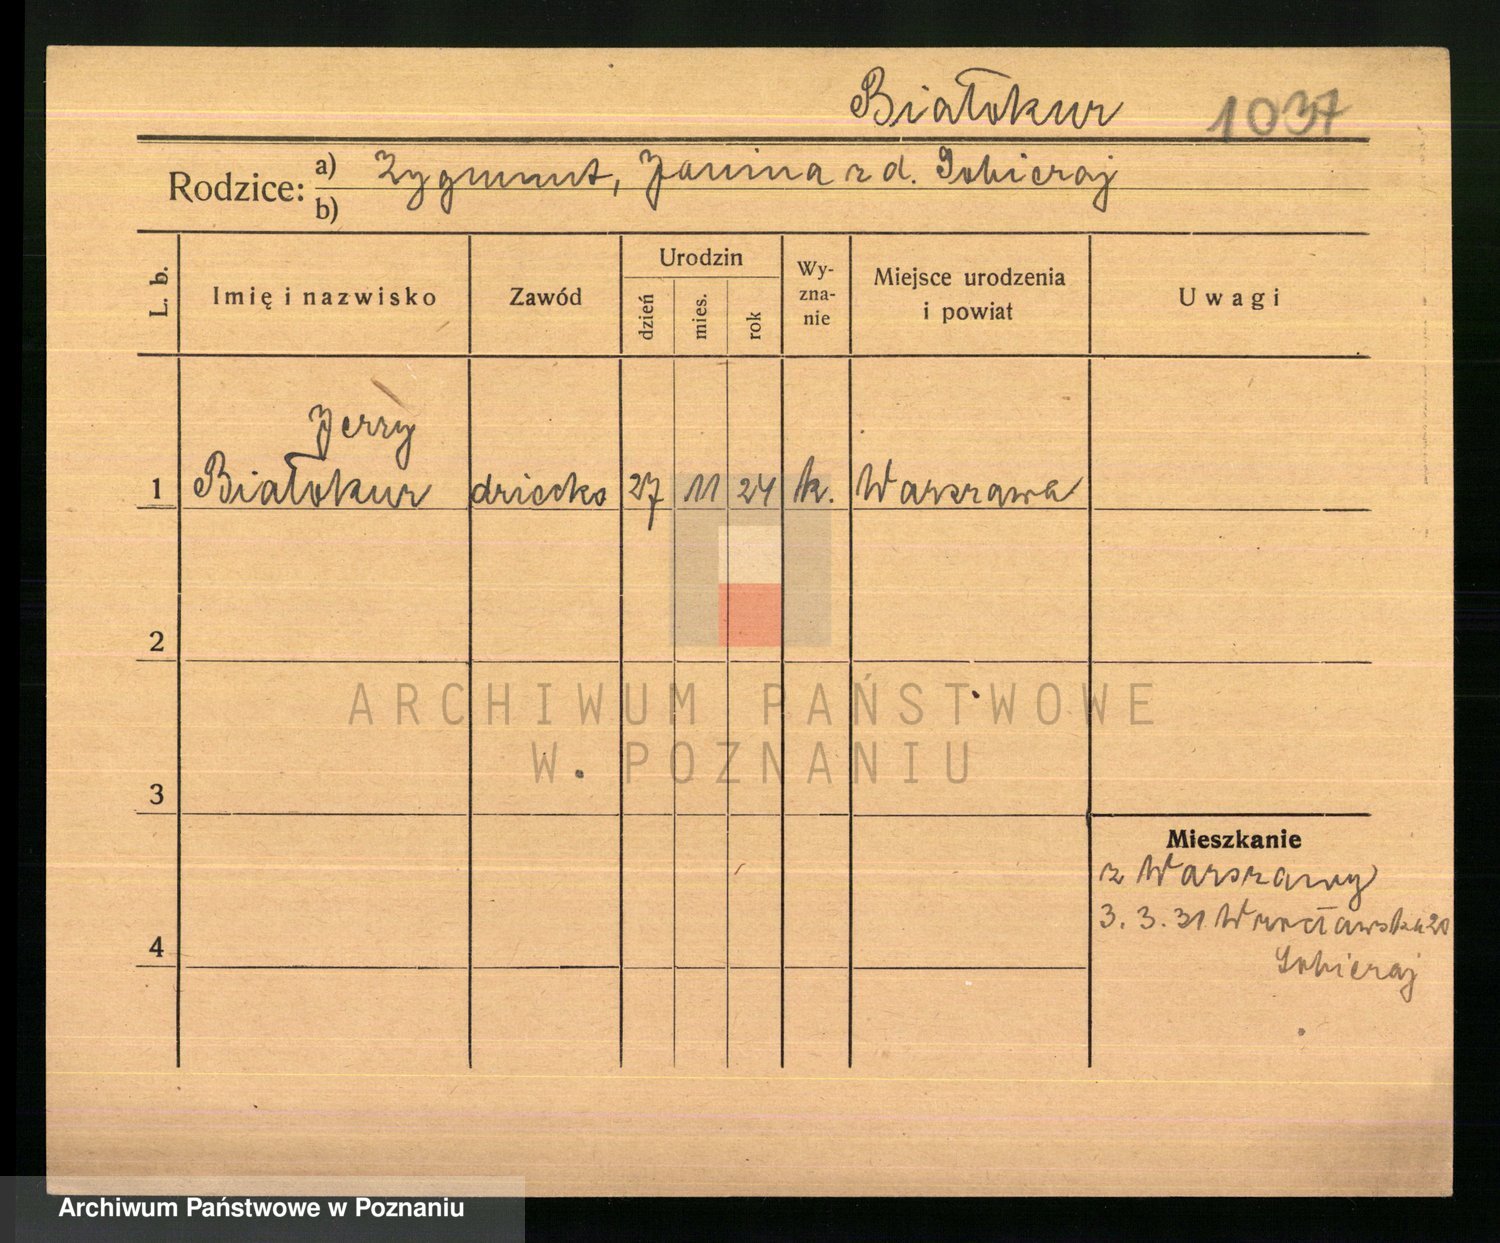 Białokur 1037
Rodzice: a) Zygmunt, Janina z d. Sobieraj
b)
L. b.
Imię i nazwisko
Zawód
Urodzin
dzień
mies.
rok
Wy-
zna-
nie
Miejsce urodzenia
i powiat
Uwagi
Jerzy
1 Białokur dziecko 27 11 24 k. Warszawa
2
ARCHIWUM PAŃSTWOWE
W POZNANIU
3
Mieszkanie
z Warszawy
3. 3. 31 Wrocławska 20
Sobieraj
4
Archiwum Państwowe w Poznaniu